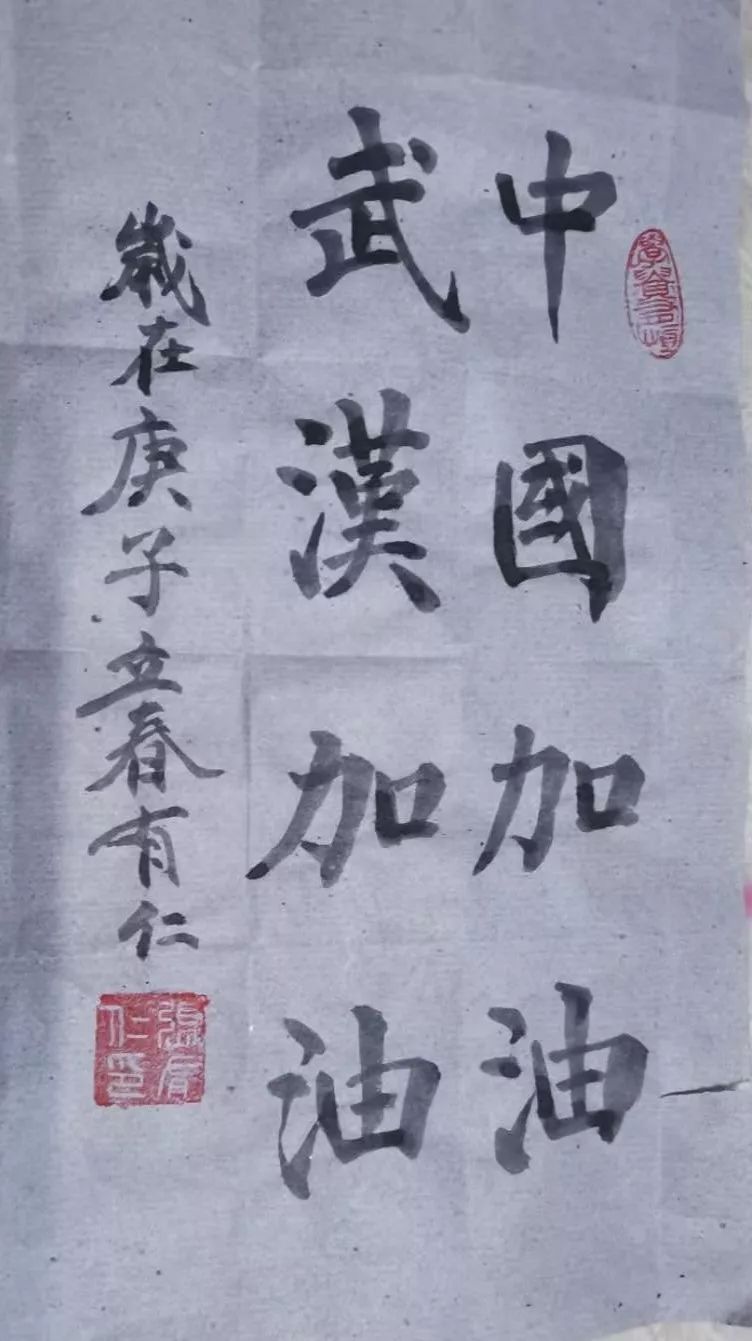 中國加油
武漢加油
歲在庚子立春有仁
張有仁印